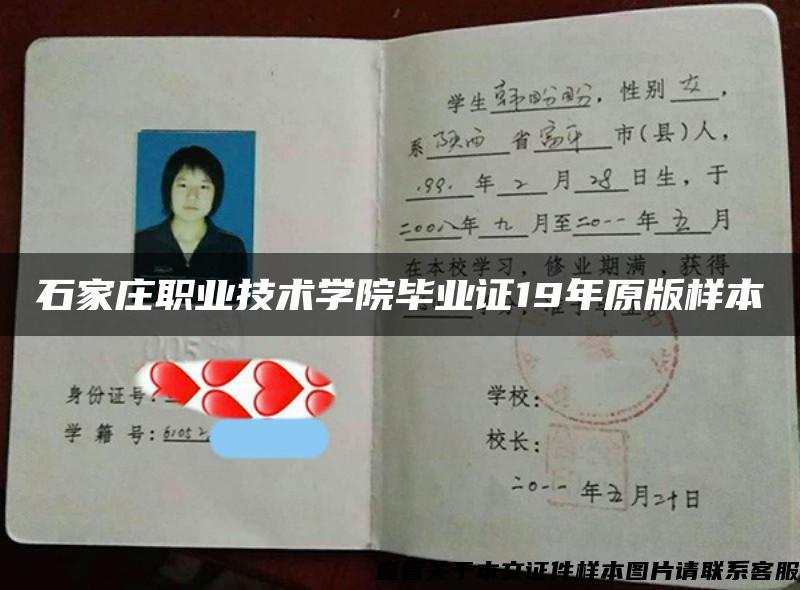 学生韩盼盼，性别女，
系陕西省富平市(县)人，
1991年2月28日生，于
二00八年九月至二0一一年五月
在本校学习，修业期满，获得
石家庄职业技术学院毕业证19年原版样本
身份证号：
学籍号：61052
学校：
校长：
二0一一年五月二十日
查看关于本文证件样本图片请联系客服